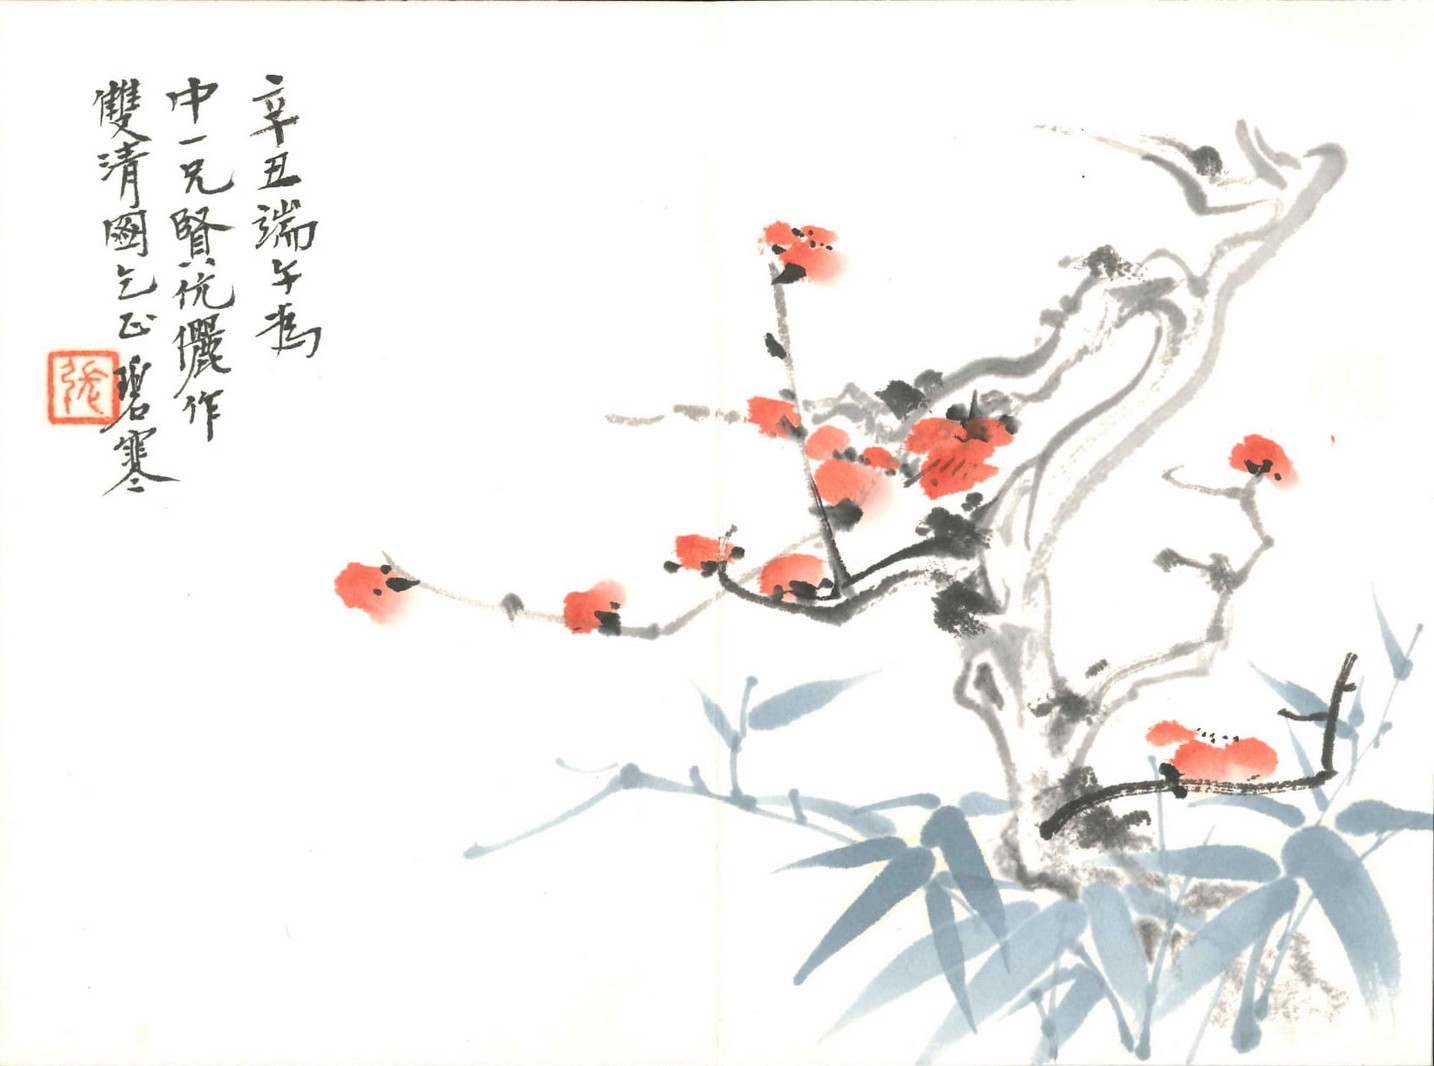 辛丑端午為
中一兄賢伉儷作
雙清圖乞正 碧寒
張